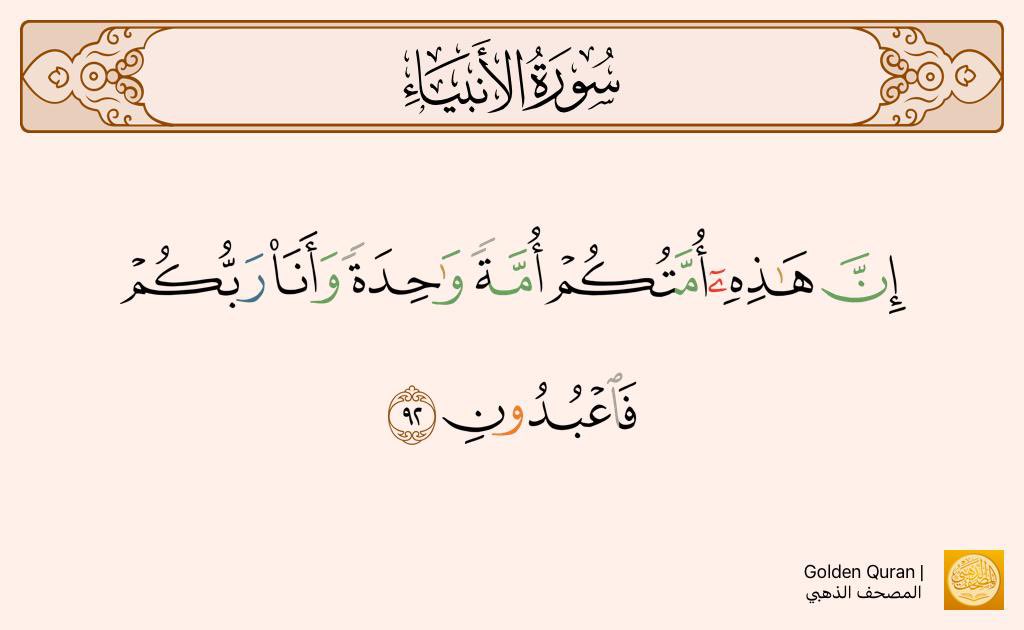 سُورَةُ الأَنبِيَاءِ
إِنَّ هَـٰذِهِۦٓ أُمَّتُكُمۡ أُمَّةً وَٰحِدَةً وَأَنَا۠ رَبُّكُمۡ
فَٱعۡبُدُونِ ٩٢
Golden Quran |
المصحف الذهبي